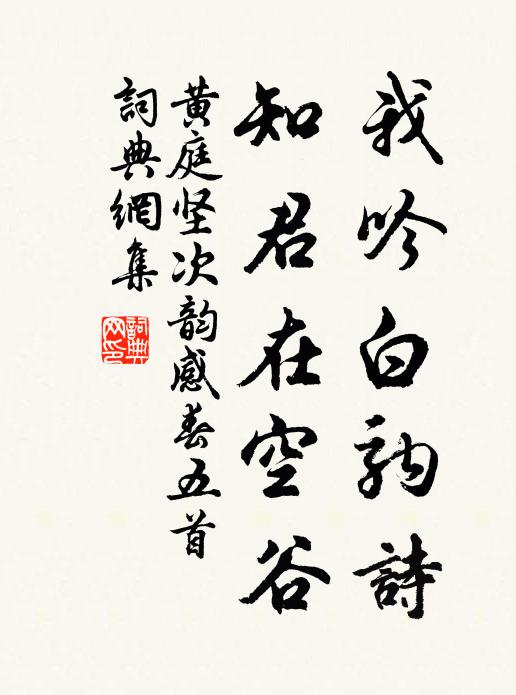 我吟白駒詩
知君在空谷
黄庭坚次韵感春五首
詞典網集
詞典网印